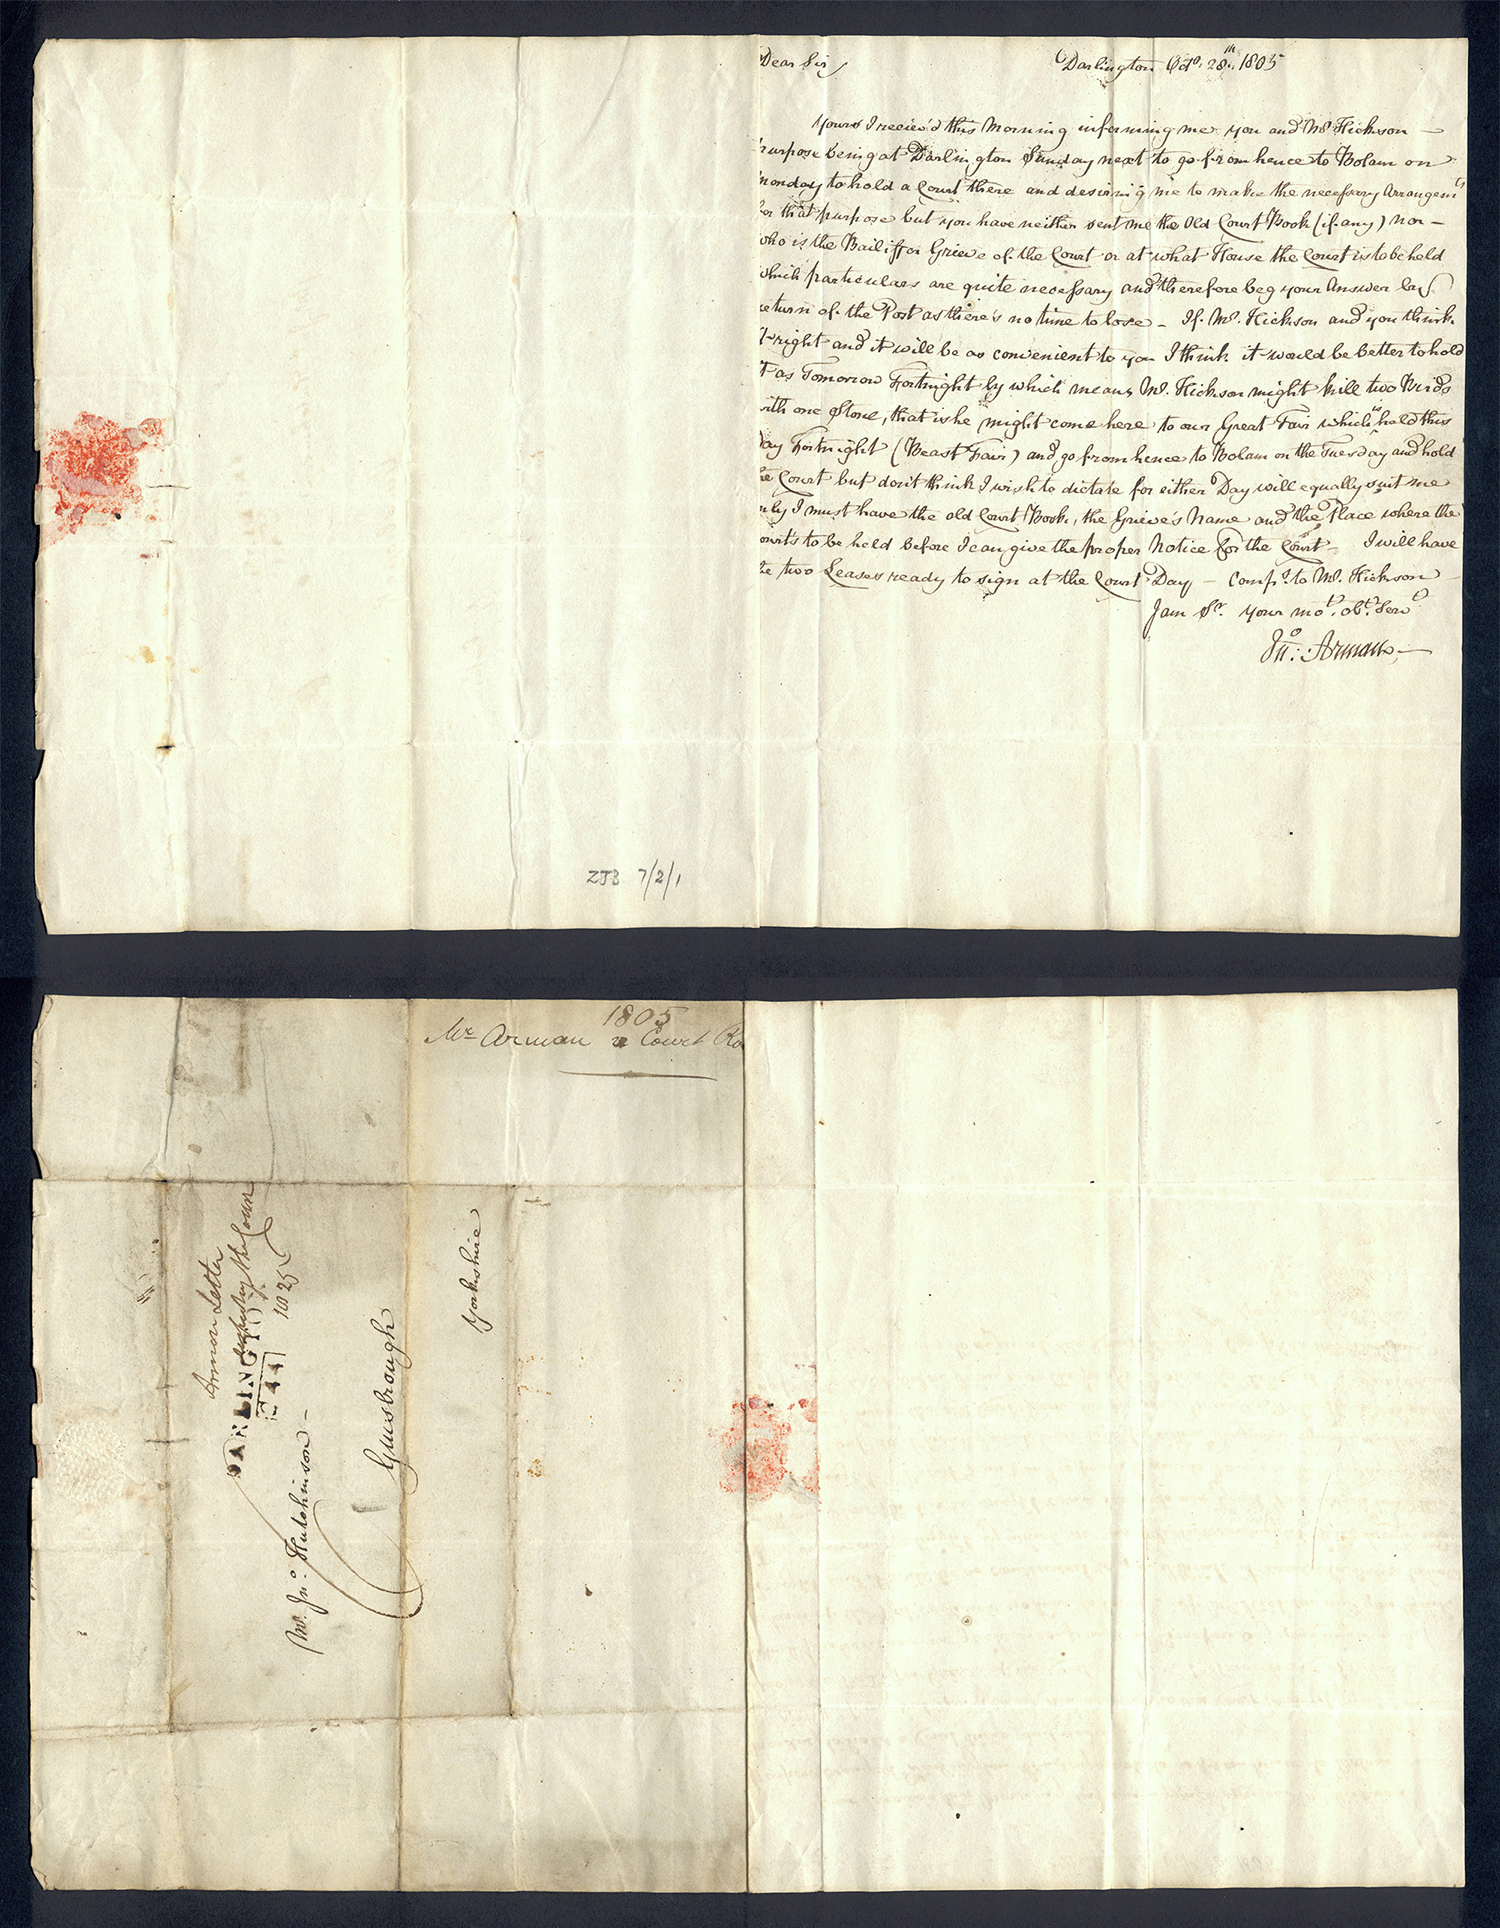 Dear Sir Darlington Octo. 28th. 1805
Yours I reciev'd this Morning informing me you and Mr Hickson —
purpose being at Darlington Sunday next to go from hence to Bolam on
Monday to hold a Court there and desiring me to make the necessary Arrangemts
for that purpose but you have neither sent me the Old Court Book (if any) nor —
who is the Bailiff or Grieve of the Court or at what House the Court is to be held
which particulars are quite necessary and therefore beg your Answer by
return of the Post as there's no time to lose — If Mr. Hickson and you think
it right and it will be as convenient to you I think it would be better to hold
it as Tomorrow Fortnight by which means Mr. Hickson might kill two Birds
with one Stone, that is he might come here to our Great Fair which is held this
day Fortnight (Beast Fair) and go from hence to Bolam on the Tuesday and hold
the Court but don't think I wish to dictate for either Day will equally suit me
only I must have the old Court Book, the Grieve's Name and the Place where the
Court's to be held before I can give the proper Notice for the Court — I will have
the two Leases ready to sign at the Court Day — Compts. to Mr. Hickson —
I am Sr. your mot. obt. Servt
Jno. Arman —
ZJB 7/2/1
1805
Mr Arman Court Ro
Arman Letter
respecting the Court
10 25
DARLINGTO
244
Mr. Jno. Hutchinson —
Guisbrough
Yorkshire